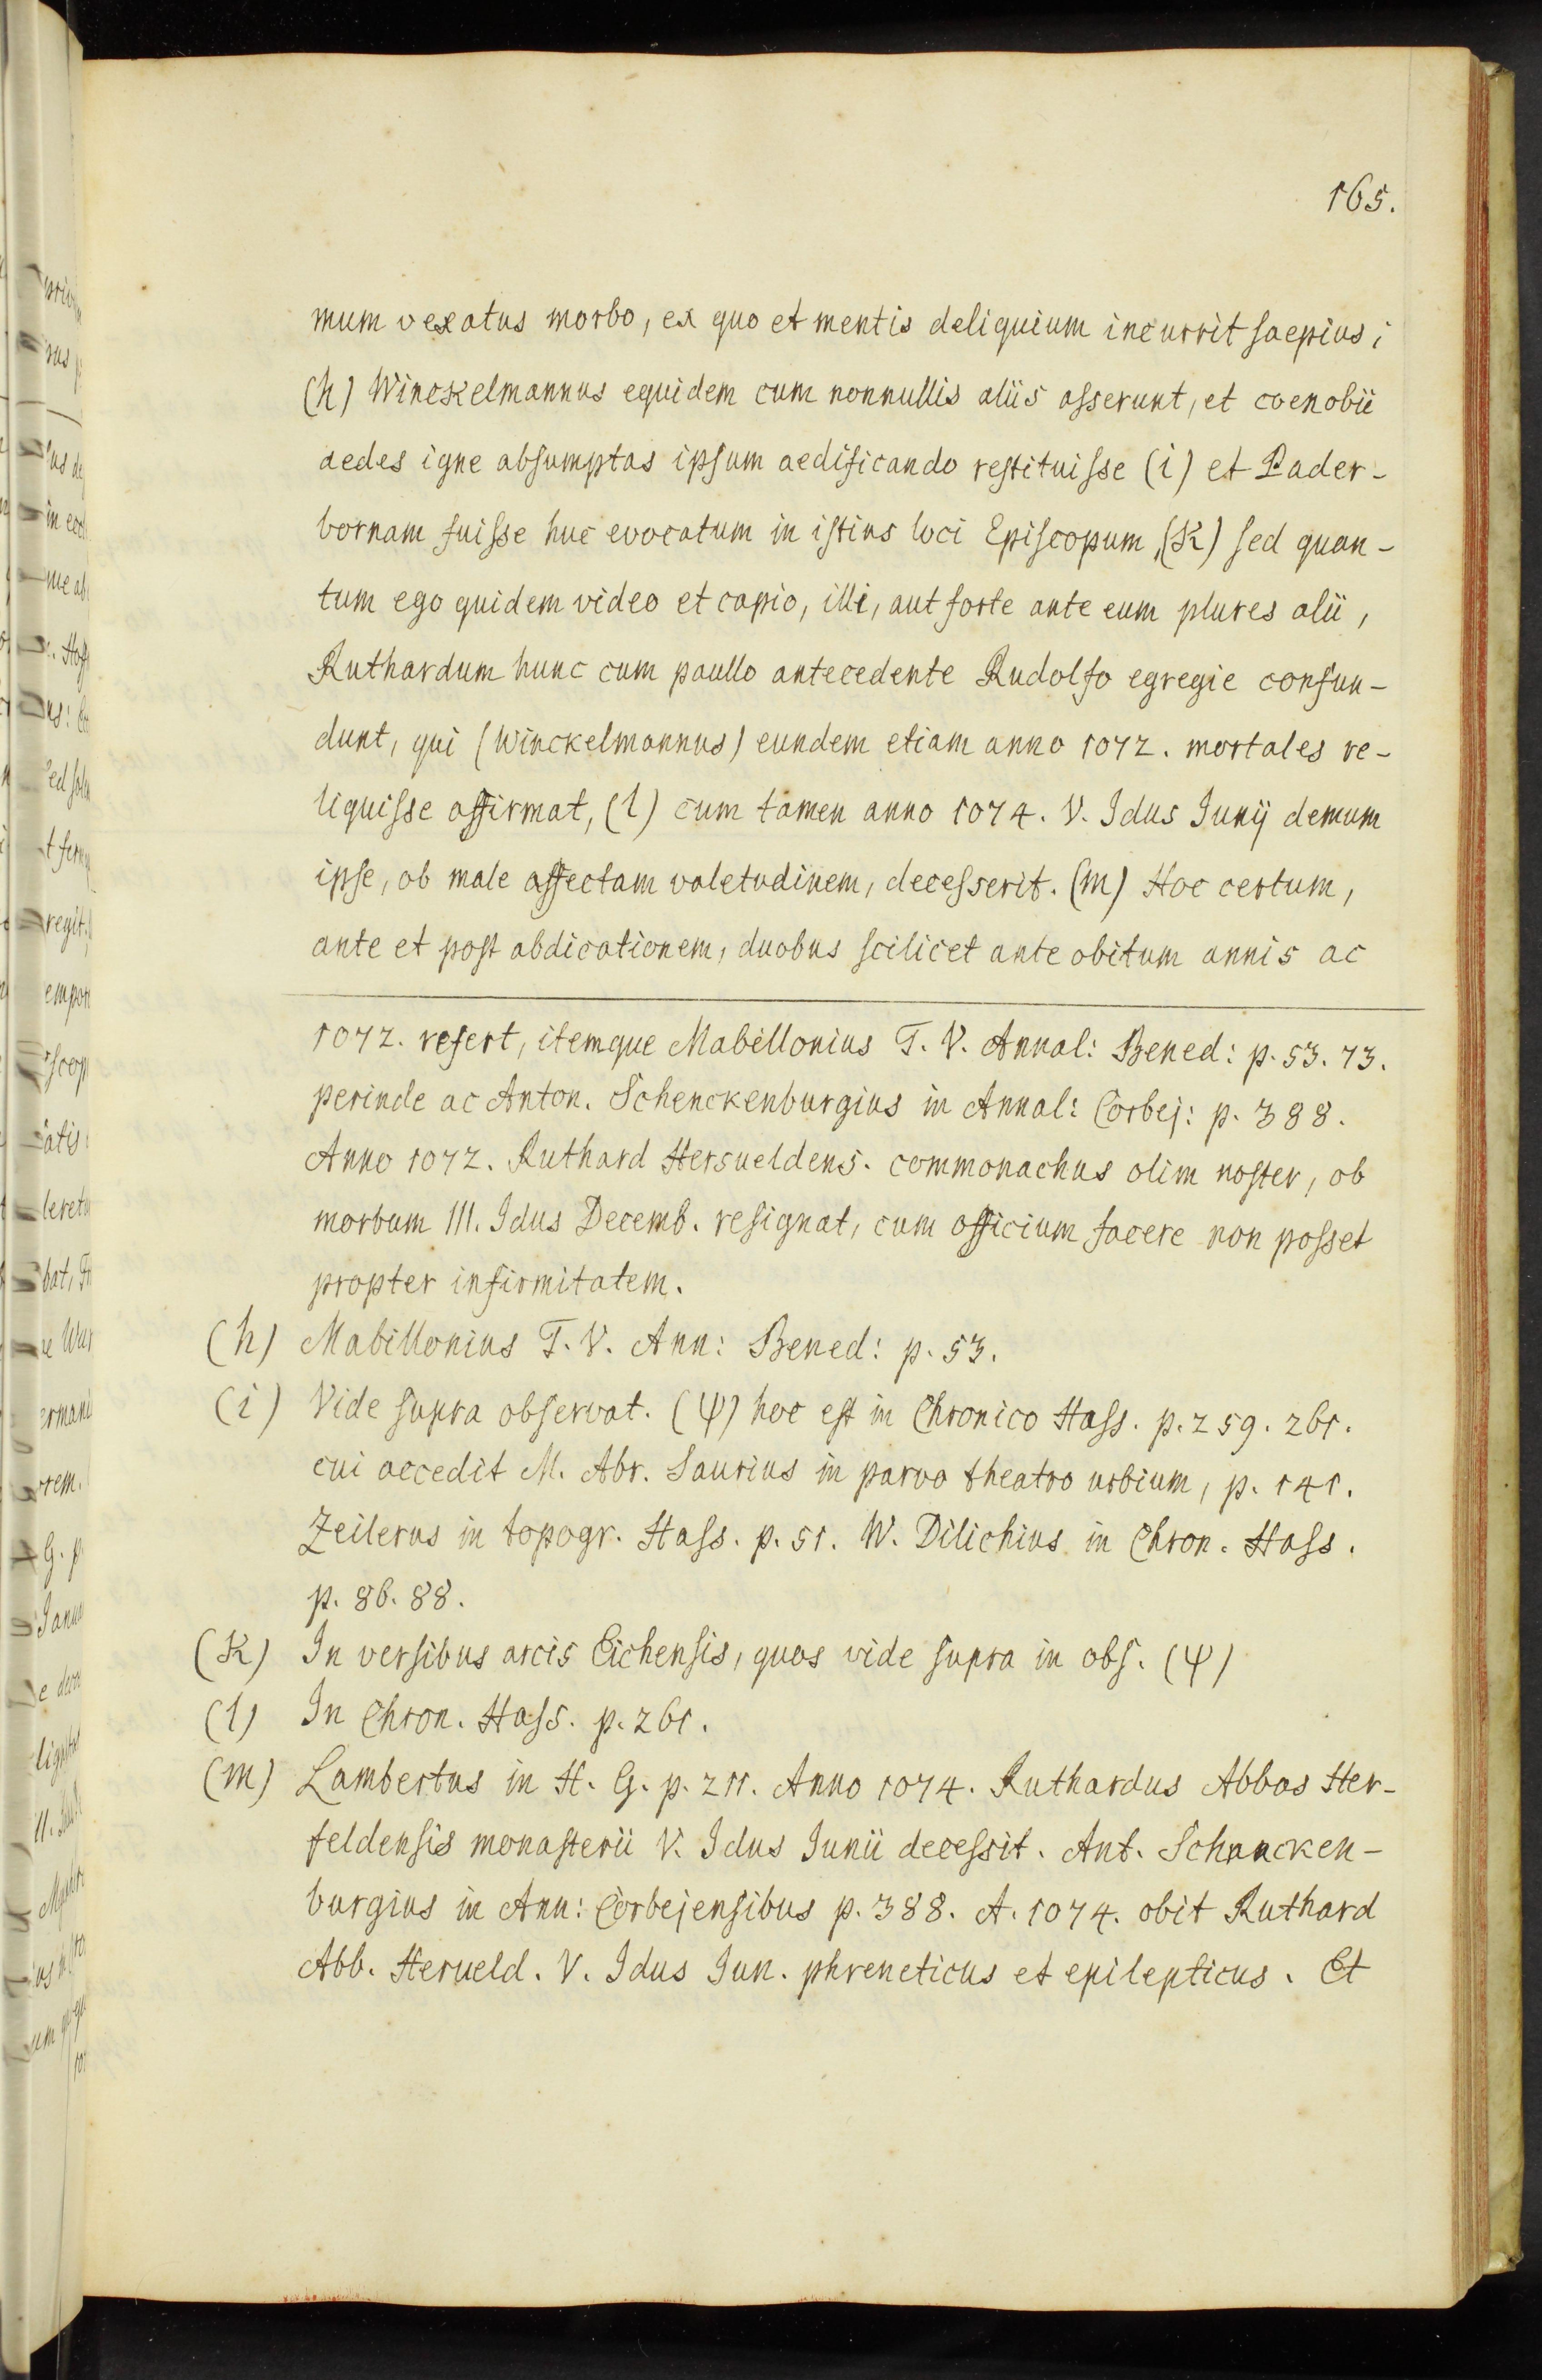 165.
mum vexatus morbo, ex quo et mentis deliquium incurrit saepius;
(h) Winckelmannus equidem cum nonnullis aliis asserunt, et coenobii
aedes igne absumptas ipsum aedificando restituisse (i) et Pader-
bornam fuisse huc evocatum in istius loci Episcopum, (K) sed quan-
tum ego quidem video et capio, illi, aut forte ante eum plures alii,
Ruthardum hunc cum paullo antecedente Rudolfo egregie confun-
dunt, qui (Winckelmannus) eundem etiam anno 1072. mortales re-
liquisse affirmat, (l) cum tamen anno 1074. V. Idus Junij demum
ipse, ob male affectam valetudinem, decesserit. (m) Hoc certum,
ante et post abdicationem, duobus scilicet ante obitum annis ac
1072. refert, itemque Mabillonius T. V. Annal: Bened: p. 53. 73.
perinde ac Anton. Schenckenburgius in Annal: Corbej: p. 388.
Anno 1072. Ruthard Hersueldens. commonachus olim noster, ob
morbum III. Idus Decemb. resignat, cum officium facere non posset
propter infirmitatem.
(h) Mabillonius T. V. Ann: Bened: p. 53.
(i) Vide supra observat. (ψ) hoc est in Chronico Hass. p. 259. 261.
cui accedit M. Abr. Saurius in parvo theatro urbium, p. 141.
Zeilerus in topogr. Hass. p. 51. W. Dilichius in Chron. Hass.
p. 86. 88.
(K) In versibus arcis Eichensis, quos vide supra in obs. (ψ)
(l) In Chron. Hass. p. 261.
(m) Lambertus in H. G. p. 211. Anno 1074. Ruthardus Abbas Her-
feldensis monasterii V. Idus Junii decessit. Ant. Schnacken-
burgius in Ann: Corbejensibus p. 388. A. 1074. obit Ruthard
Abb. Herueld. V. Idus Jun. phreneticus et epilepticus. Et